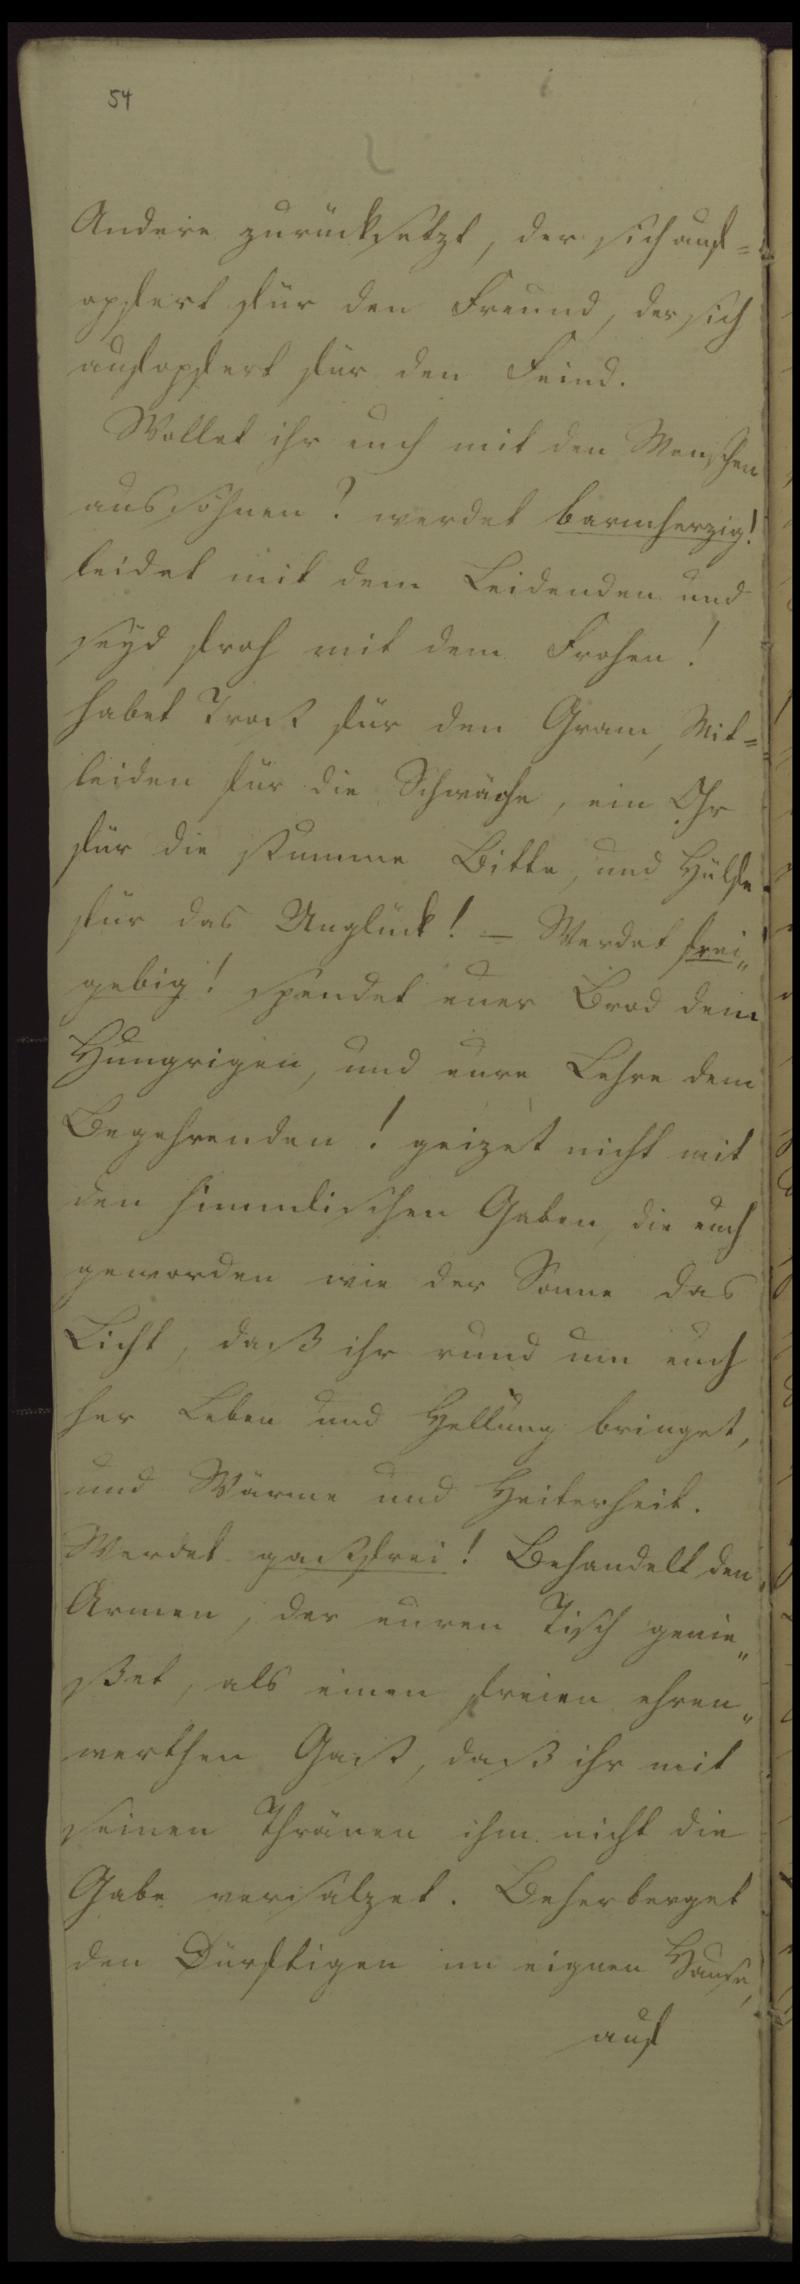 54
Andere zurücksetzt, der sich auf=
opfert für den Freund, der sich
aufopfert für den Feind.
Wollet ihr euch mit den Menschen
aussöhnen? werdet barmherzig!
leidet mit dem Leidenden und
seyd froh mit dem Frohen!
habet Trost für den Gram, Mit=
leiden für die Schwäche, ein Ohr
für die stumme Bitte, und Hülfe
für das Unglück! – Werdet frei„
gebig! spendet euer Brod dem
Hungrigen, und eure Lehre dem
Begehrenden! geizet nicht mit
den himmlischen Gaben, die euch
geworden wie der Sonne das
Licht, daß ihr rund um euch
her Leben und Hellung bringet,
und Wärme und Heiterheit.
Werdet gastfrei! Behandelt den
Armen, der euren Tisch genie„
ßet, als einen freien ehren„
werthen Gast, daß ihr mit
seinen Thränen ihm nicht die
Gabe versalzet. Beherberget
den Dürftigen im eignen Hause,
auf